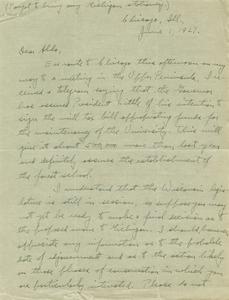 (Forgot to bring any Michigan stationery.)
Chicago, Ill.
June 1, 1927.
Dear Aldo,
En route to Chicago this afternoon on my
way to a meeting in the Upper Peninsula, I re-
ceived a telegram saying that the Governor
has assured President Little of his intention to
sign the mill tax bill appropriating funds for
the maintenance of the University. This will
give it about 500,000 more than last year
and definitely assures the establishment of
the forest school.
I understand that the Wisconsin legis-
lature is still in session, so suppose you may
not yet be ready to make a final decision as to
the proposed move to Michigan. I should however
appreciate any information as to the probable
date of adjournment and as to the action likely
on those phases of conservation in which you
are particularly interested. Please do not